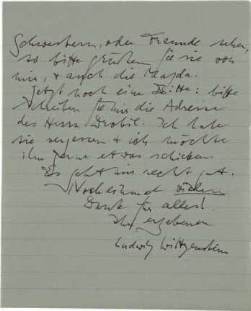 Schwestern, oder Freunde sehen,
so bitte grüßen Sie sie von
mir, & auch die Magda.
Jetzt noch eine Bitte: bitte
schreiben Sie mir die Adresse
des Herrn Drobil. Ich habe
sie vergessen & ich möchte
ihm gerne etwas schicken.
Es geht mir recht gut.
Nocheinmal vielen
Dank für alles!
Ihr ergebener
Ludwig Wittgenstein